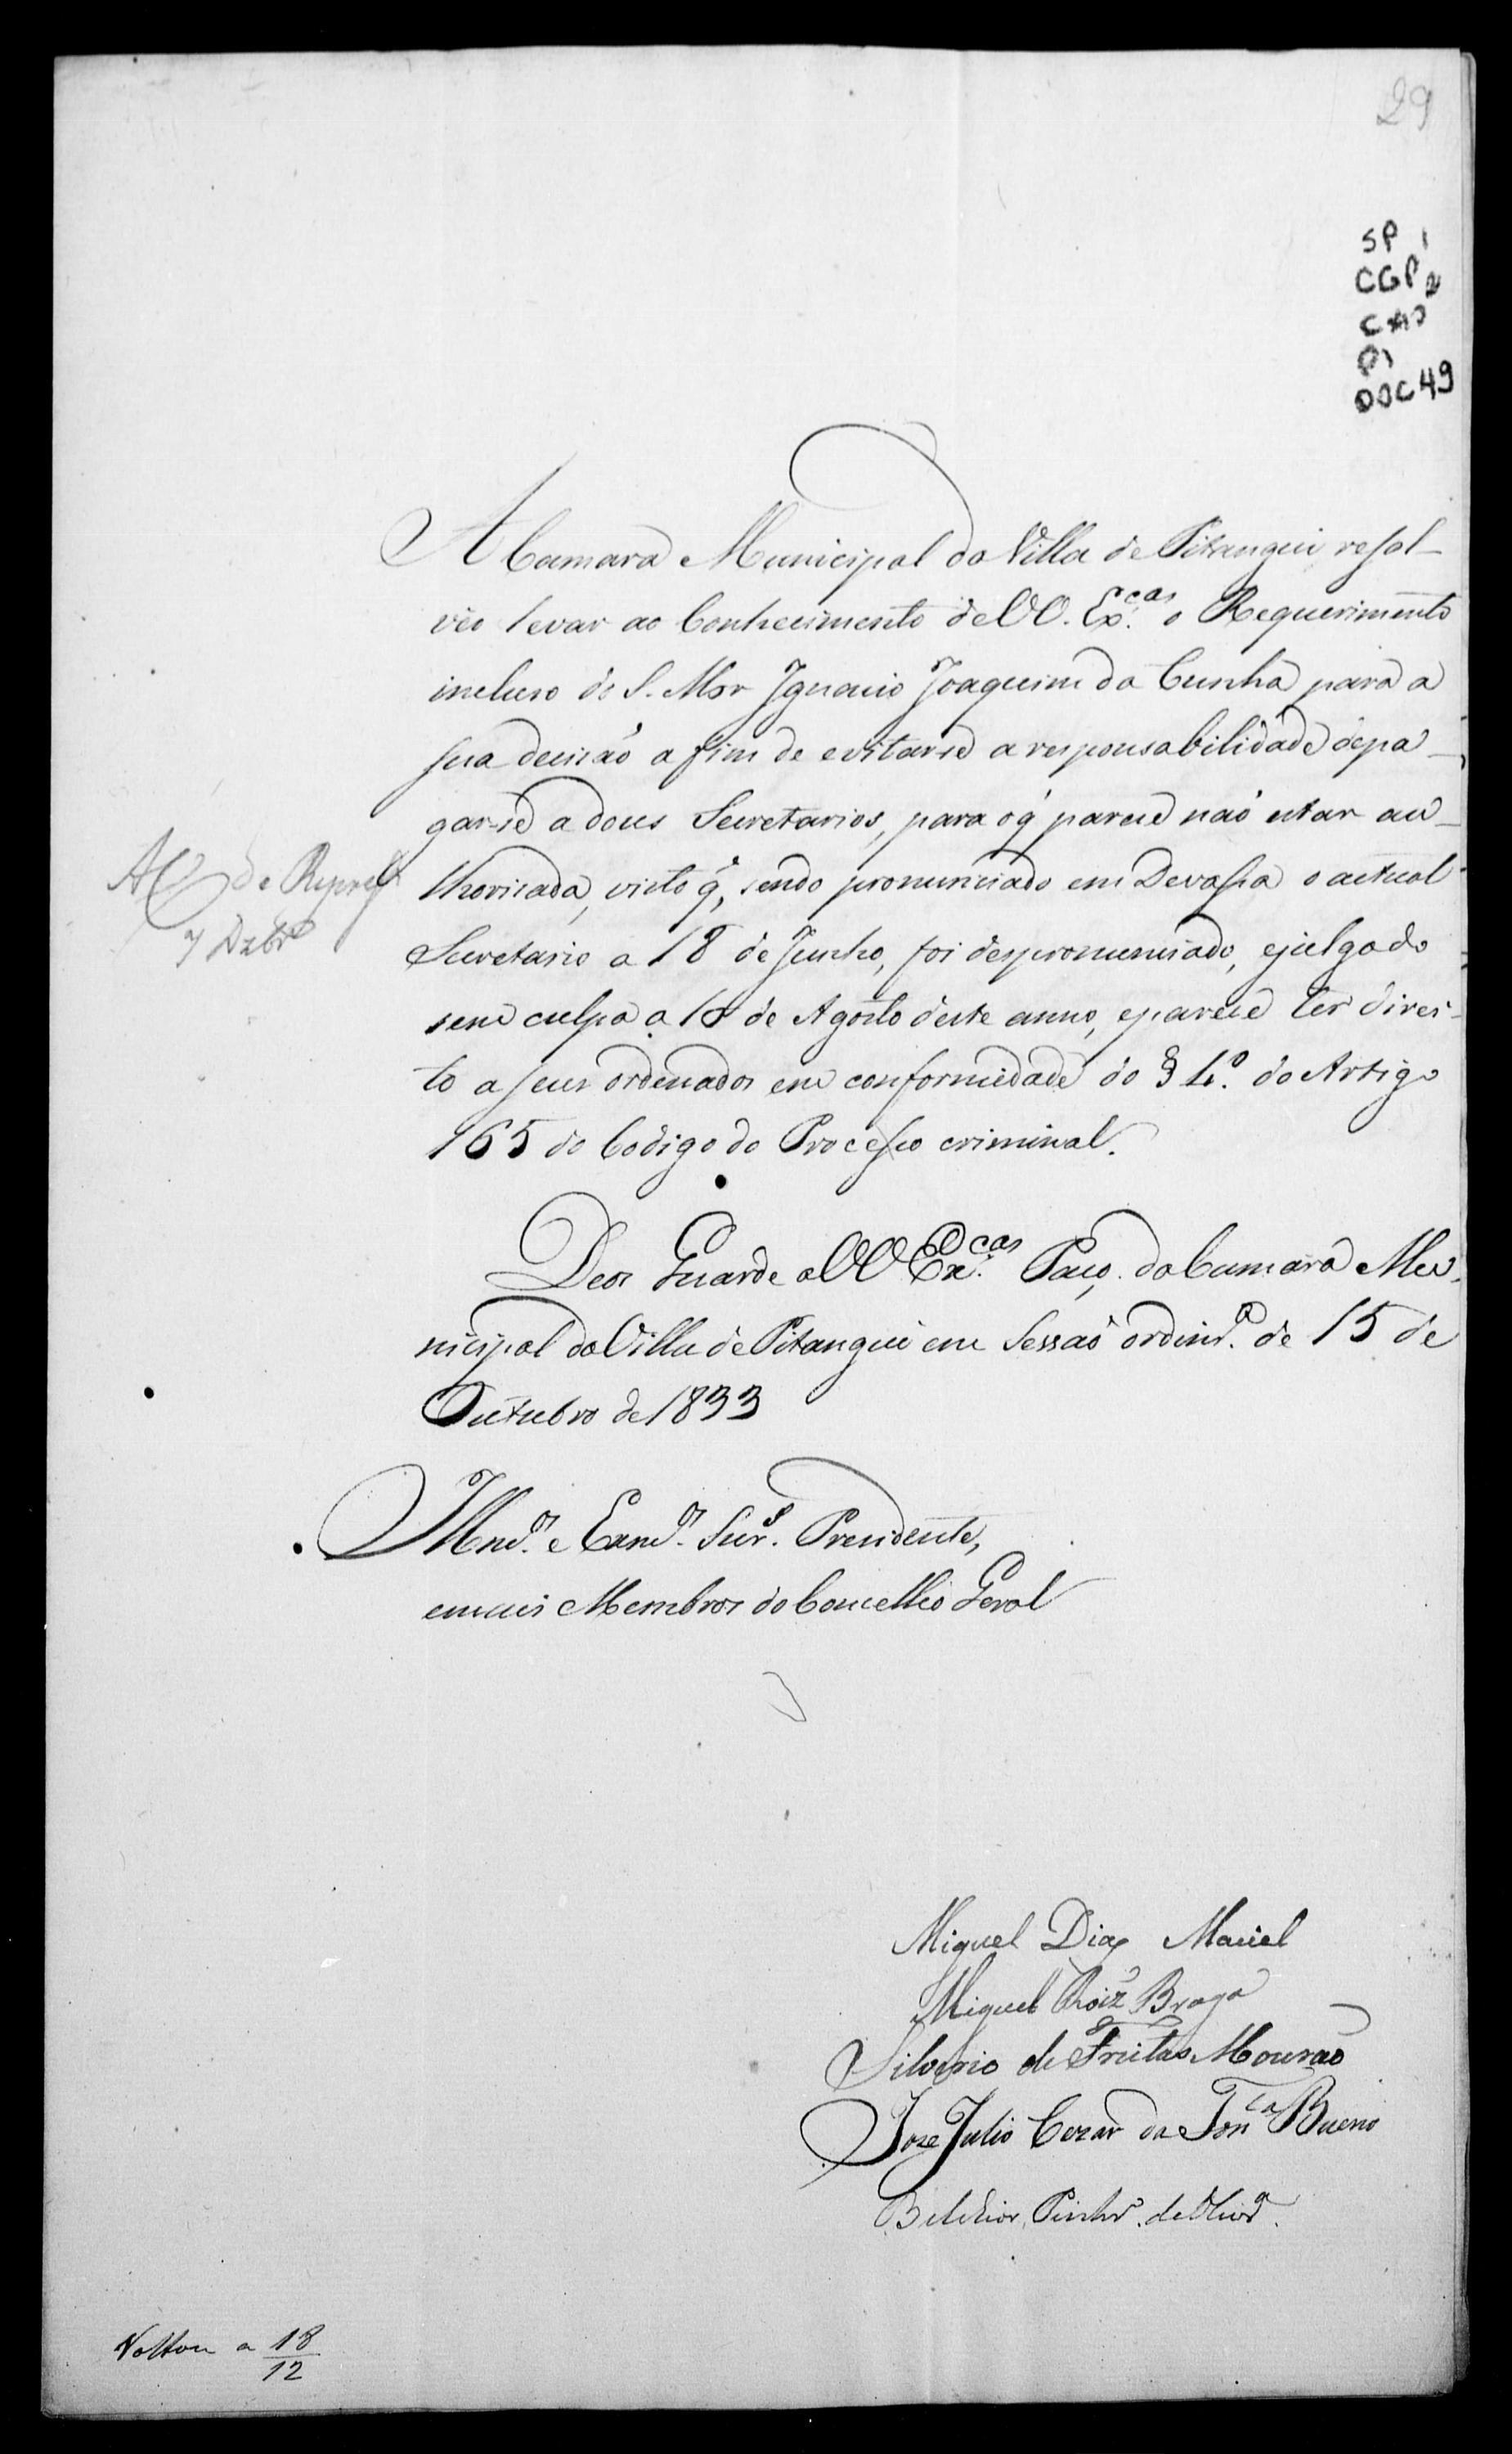 29
SP 1
CGP 2
CX 0
P1
DOC 49
A Camara Municipal da Villa de Pitangui resol-
veo levar ao Conhecimento de VV. Ex.cas o Requerimento
incluso do S. Mor Ignacio Joaquim da Cunha para a
sua decisão a fim de evitarse a responsabilidade depa-
gar-se a dous Secretarios, para oq̃ parece não estar au-
thorisada, visto q̃, sendo pronunciado em Devassa o actual
Secretario a 18 de Junho, foi despronunciado, ejulgado
sem culpa a de Agosto deste anno, eparece ter direi-
to a seus ordenados em conformidade do § 4.º do Artigo
165 do Codigo do Processo criminal.
A C de Represt
7 Dzbrº
Deos Guarde a VV Ex.cas Paço da Camara Mu-
nicipal da Villa de Pitangui em Sessão ordinr.a de 15 de
Outubro de 1833
Illmos. e Exmos. Snr.s Presidente,
emais Membros do Concelho Geral
Miguel Dias Maciel
Miguel Roiz Braga
Silverio de Freitas Mourão
Jose Julio Cezar da Fonca Bueno
Belchior Pinhr.o de Olivr.a
Voltou a 18/12